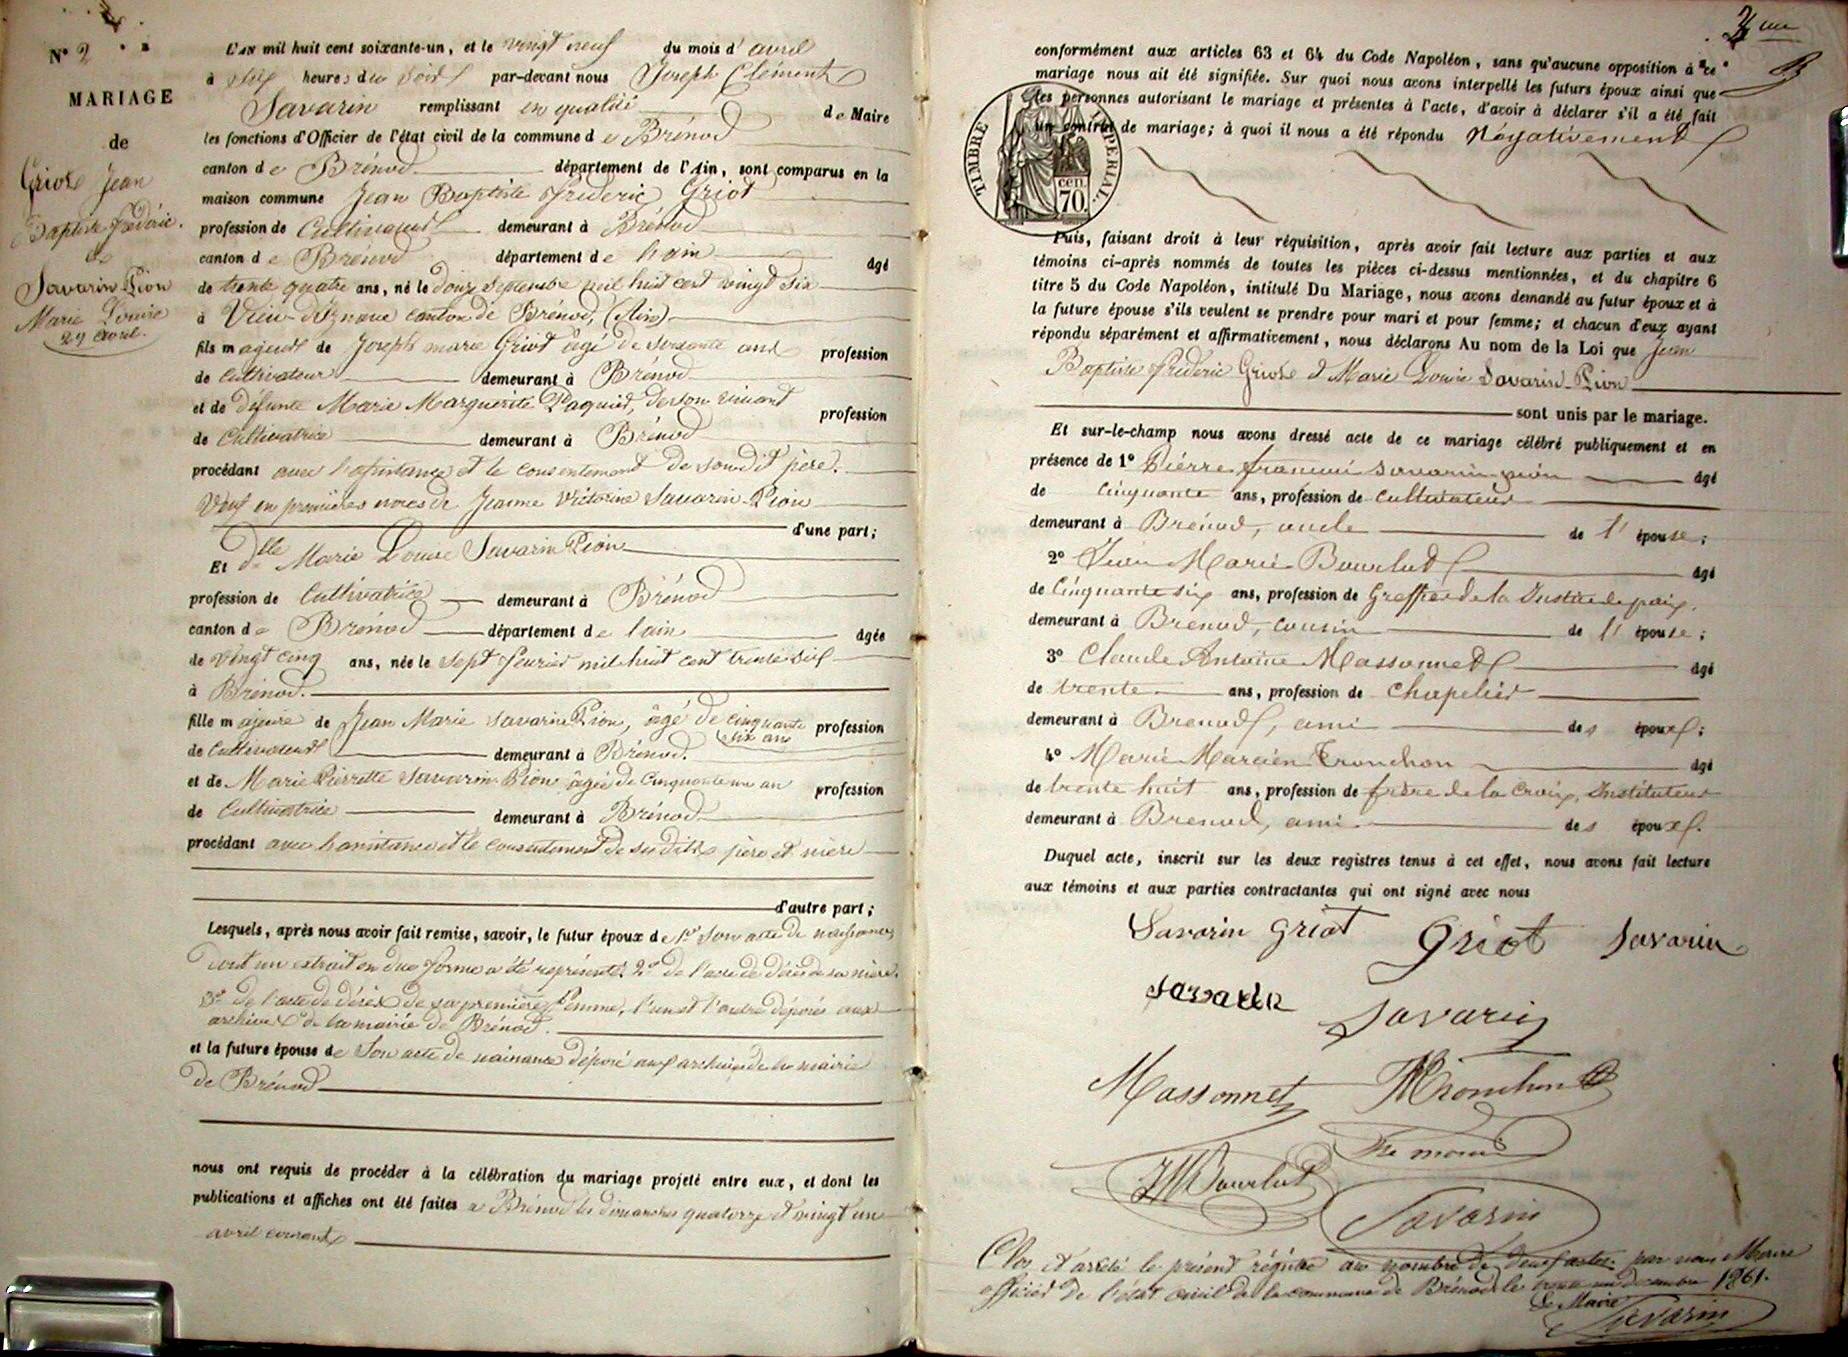 N° 2
MARIAGE
de
Griot Jean
Baptiste Frédéric
et
Savarin Pion
Marie Louise
29 avril.
L'AN mil huit cent soixante-un, et le vingt neuf du mois d' avril
à six heures du soir par-devant nous Joseph Clément
Savarin remplissant en qualité de Maire
les fonctions d'Officier de l'état civil de la commune de Brénod
canton de Brénod département de l'Ain, sont comparus en la
maison commune Jean Baptiste Frédéric Griot
profession de Cultivateur demeurant à Brénod
canton de Brénod département de l'ain âgé
de trente quatre ans, né le douze septembre mil huit cent vingt six
à Vieu-d'Izenave canton de Brénod, (Ain)
fils majeur de Joseph marie Griot âgé de soixante ans profession
de cultivateur demeurant à Brénod
et de défunte Marie Marguerite Paquiet, de son vivant profession
de Cultivatrice demeurant à Brénod
procédant avec l'assistance et le consentement de son dit père.
Veuf en premières noces de Jeanne Victorine Savarin-Pion
d'une part;
Et dlle Marie Louise Savarin Pion
profession de Cultivatrice demeurant à Brénod
canton de Brénod département de l'ain âgée
de vingt cinq ans, née le sept février mil huit cent trente six
à Brénod.
fille majeure de Jean Marie Savarin Pion, âgé de cinquante profession
six ans
de Cultivateur demeurant à Brénod.
et de Marie Pierrette Savarin-Pion âgée de cinquante un an profession
de Cultivatrice demeurant à Brénod
procédant avec l'assistance et le consentement de ses dits père et mère
d'autre part;
Lesquels, après nous avoir fait remise, savoir, le futur époux de 1° son acte de naissance,
dont un extrait en due forme a été représenté. 2° de l'acte de décès de sa mère.
3° de l'acte de décès de sa première femme, l'un et l'autre déposés aux
archives de la mairie de Brénod.
et la future épouse de son acte de naissance déposé aux archives de la mairie
de Brénod
nous ont requis de procéder à la célébration du mariage projeté entre eux, et dont les
publications et affiches ont été faites à Brénod les dimanches quatorze et vingt un
avril courant
conformément aux articles 63 et 64 du Code Napoléon, sans qu'aucune opposition à ce
mariage nous ait été signifiée. Sur quoi nous avons interpellé les futurs époux ainsi que
les personnes autorisant le mariage et présentes à l'acte, d'avoir à déclarer s'il a été fait
un contrat de mariage; à quoi il nous a été répondu Négativement
TIMBRE IMPERIAL.
cen.
70.
Puis, faisant droit à leur réquisition, après avoir fait lecture aux parties et aux
témoins ci-après nommés de toutes les pièces ci-dessus mentionnées, et du chapitre 6
titre 5 du Code Napoléon, intitulé Du Mariage, nous avons demandé au futur époux et à
la future épouse s'ils veulent se prendre pour mari et pour femme; et chacun d'eux ayant
répondu séparément et affirmativement, nous déclarons Au nom de la Loi que Jean
Baptiste Frédéric Griot et Marie Louise Savarin-Pion
sont unis par le mariage.
Et sur-le-champ nous avons dressé acte de ce mariage célébré publiquement et en
présence de 1° Pierre françois savarin pion âgé
de cinquante ans, profession de cultivateur
demeurant à Brénod, oncle de l' épouse;
2° Jean Marie Bourlut âgé
de Cinquante six ans, profession de Greffier de la Justice de paix.
demeurant à Brenod, cousin de l' épouse;
3° Claude Antoine Massonnet âgé
de trente ans, profession de Chapelier
demeurant à Brenod, ami des époux;
4° Marie Marcien Tronchon âgé
de trente huit ans, profession de frère de la Croix, Instituteur
demeurant à Brenod, ami des époux.
Duquel acte, inscrit sur les deux registres tenus à cet effet, nous avons fait lecture
aux témoins et aux parties contractantes qui ont signé avec nous
Savarin Griot Griot Savarin
savarin
Savarin
Massonnet Tronchon
JMBourlut
Savarin
Clos et arrêté le présent régistre au nombre de deux actes par nous Maire
officier de l'état civil de la commune de Brénod le trente un decembre 1861.
Le Maire
Savarin